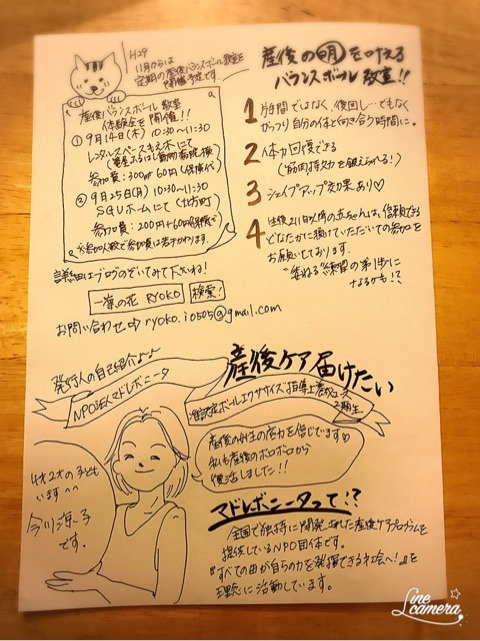 H29
11月からは
定期の産後バランスボール教室を
開催予定です。
産後バランスボール教室
体験会を開催!!
① 9月14日(木) 10:30〜11:30
レンタルスペースもえ木にて
参加費:300円+60円(保険代)
② 9月25日(月) 10:30〜11:30
SGUホームにて(北方町)
参加費:200円+60円(保険代)
※参加人数で参加費は若干かわります。
詳細はブログをのぞいてみて下さいね!
一筆の花 RYOKO 検索!
お問い合わせ⇨ ryoko.i0505@gmail.com
産後の
を叶える
バランスボール教室!!
1 片手間ではなく、後回し…でもなく
がっつり自分の体と向き合う時間に。
2 体力回復できる
(筋持久力を鍛えられる!)
3 シェイプアップ効果あり♡
4 生後211日以降の赤ちゃんは、信頼できる
どなたかに預けていただいての参加を
お願いしております。
"委ねる"練習の第1歩に
なるかも!?
発行人の自己紹介
NPO法人マドレボニータ
産後ケア届けたい
認定ボールエクササイズ指導士養成コース
2期生
産後の女性の底力を信じてます♡
私も産後のボロボロから
復活しました!!
4才2才の子ども
います^^
今川涼子
です。
マドレボニータって!?
全国で独自に開発した産後ケアプログラムを
提供しているNPO団体です。
『すべての母が自らの力を発揮できる社会へ!』を
理念に活動しています。
Line camera